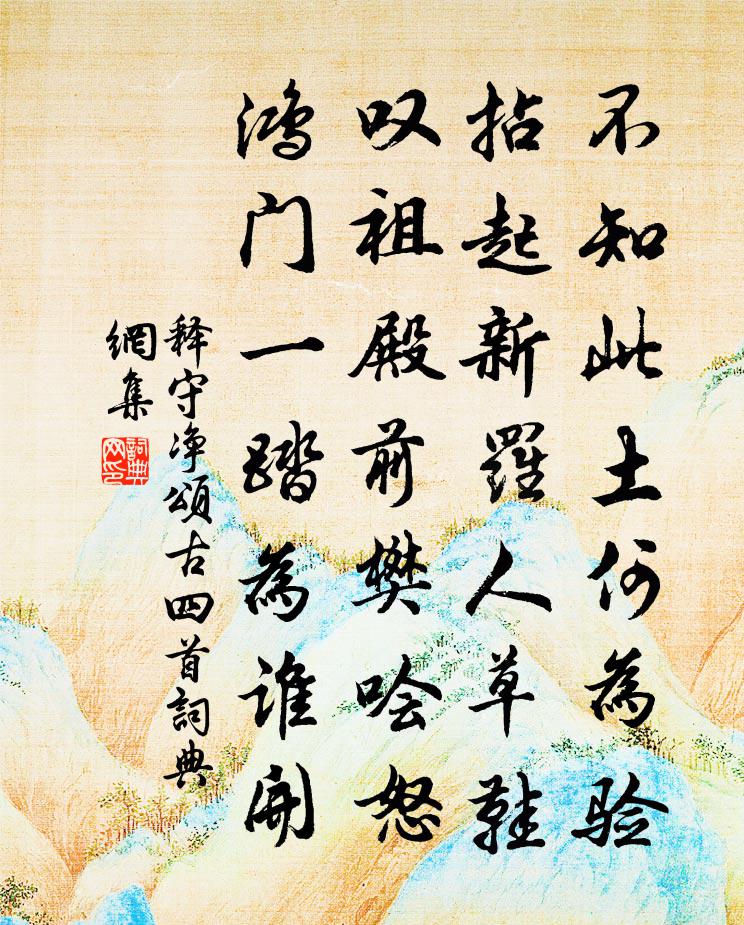 不知此土何为验
拈起新羅人草鞋
叹祖殿前樊哙怒
鸿门一踏為谁開
释守净頌古四首詞典
網集
詞典
网印